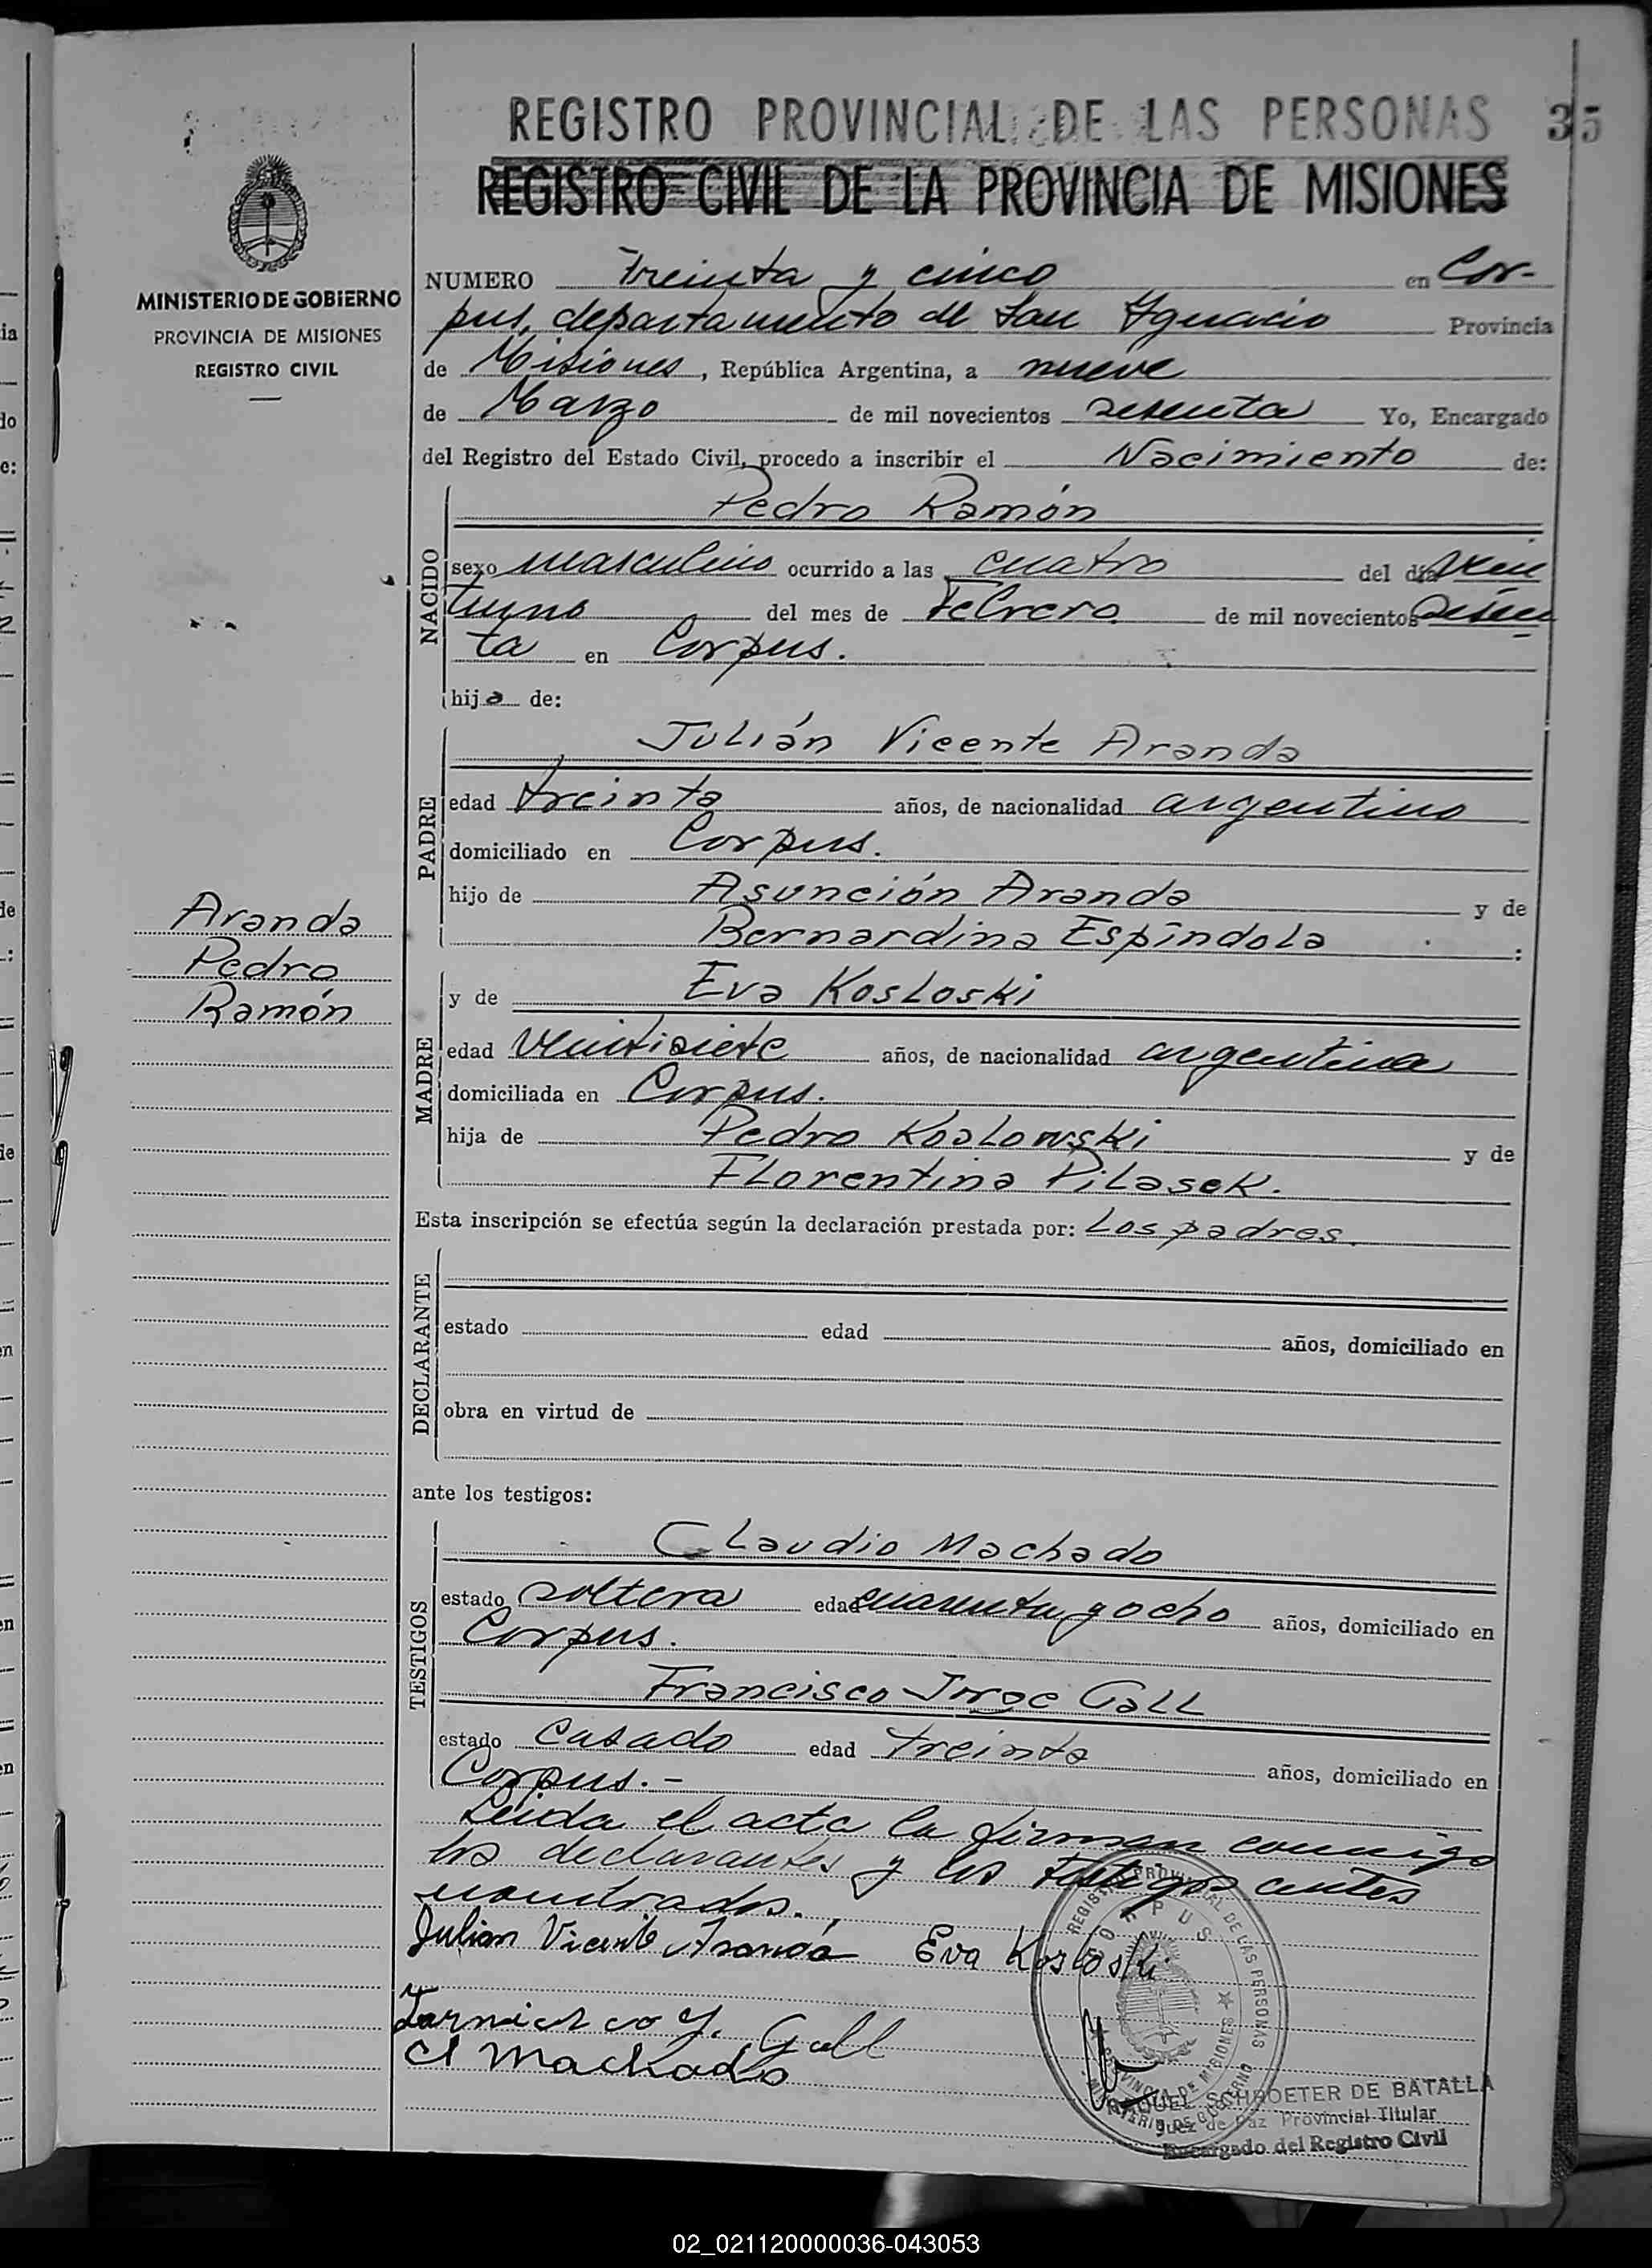 REGISTRO PROVINCIAL DE LAS PERSONAS 35
REGISTRO CIVIL DE LA PROVINCIA DE MISIONES
MINISTERIO DE GOBIERNO
PROVINCIA DE MISIONES
REGISTRO CIVIL
NUMERO Treinta y cinco en Cor-
pus, departamento de San Ygnacio Provincia
de Misiones, República Argentina, a nueve
de Marzo de mil novecientos sesenta Yo, Encargado
del Registro del Estado Civil, procedo a inscribir el Nacimiento de:
NACIDO
Pedro Ramón
sexo masculino ocurrido a las cuatro del día vein
tiuno del mes de Febrero de mil novecientos sesen
ta en Corpus.
hijo de:
PADRE
Julián Vicente Aranda
edad treinta años, de nacionalidad argentino
domiciliado en Corpus.
hijo de Asunción Aranda y de
Bernardina Espíndola :
Aranda
Pedro
Ramón
MADRE
y de Eva Kosloski
edad veintisiete años, de nacionalidad argentina
domiciliada en Corpus.
hija de Pedro Koslowski y de
Florentina Pilasek.
Esta inscripción se efectúa según la declaración prestada por: Los padres.
DECLARANTE
estado edad años, domiciliado en
obra en virtud de
ante los testigos:
TESTIGOS
Claudio Machado
estado soltero edad cuarenta y ocho años, domiciliado en
Corpus.
Francisco Jorge Gall
estado casado edad treinta años, domiciliado en
Corpus.-
Leida el acta la firman conmigo
los declarantes y los testigos antes
nombrados.
Julian Vicente Aranda Eva Kosloski
Francisco J. Gall
Cl Machado
REGISTRO PROVINCIAL DE LAS PERSONAS
CORPUS
PROVINCIA DE MISIONES
MINISTERIO DE GOBIERNO
RAQUEL SCHROETER DE BATALLA
Juez de Paz Provincial Titular
Encargado del Registro Civil
02_021120000036-043053